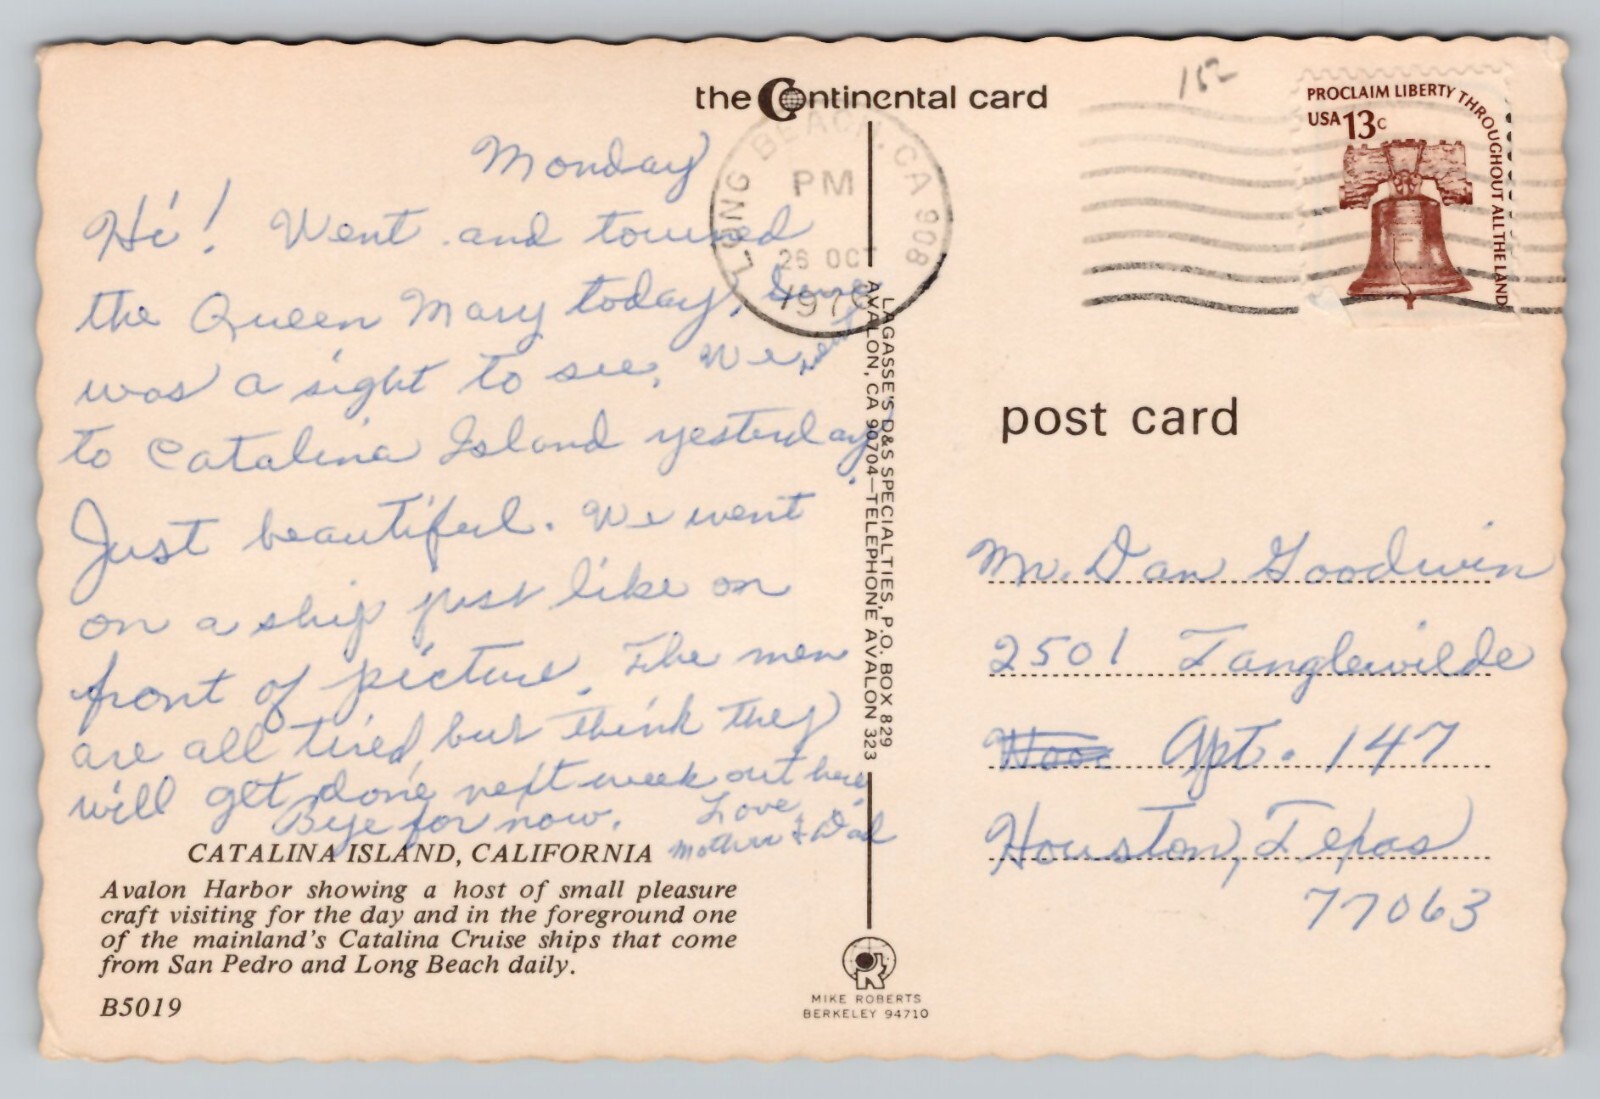 the Continental card
152
PROCLAIM LIBERTY THROUGHOUT ALL THE LAND
USA 13c
LONG BEACH, CA 908
PM
26 OCT
197
Monday
Hi! Went and toured
the Queen Mary today. Sure
was a sight to see. We went
to Catalina Island yesterday.
Just beautiful. We went
on a ship just like on
front of picture. The men
are all tired but think they
will get done next week out here
Bye for now. Love
Mother & Dad
CATALINA ISLAND, CALIFORNIA
Avalon Harbor showing a host of small pleasure
craft visiting for the day and in the foreground one
of the mainland's Catalina Cruise ships that come
from San Pedro and Long Beach daily.
B5019
LAGASSE'S D&S SPECIALTIES, P.O. BOX 829
AVALON, CA 90704—TELEPHONE AVALON 323
MIKE ROBERTS
BERKELEY 94710
post card
Mr. Dan Goodwin
2501 Tanglewilde
Apt. 147
Houston, Texas
77063